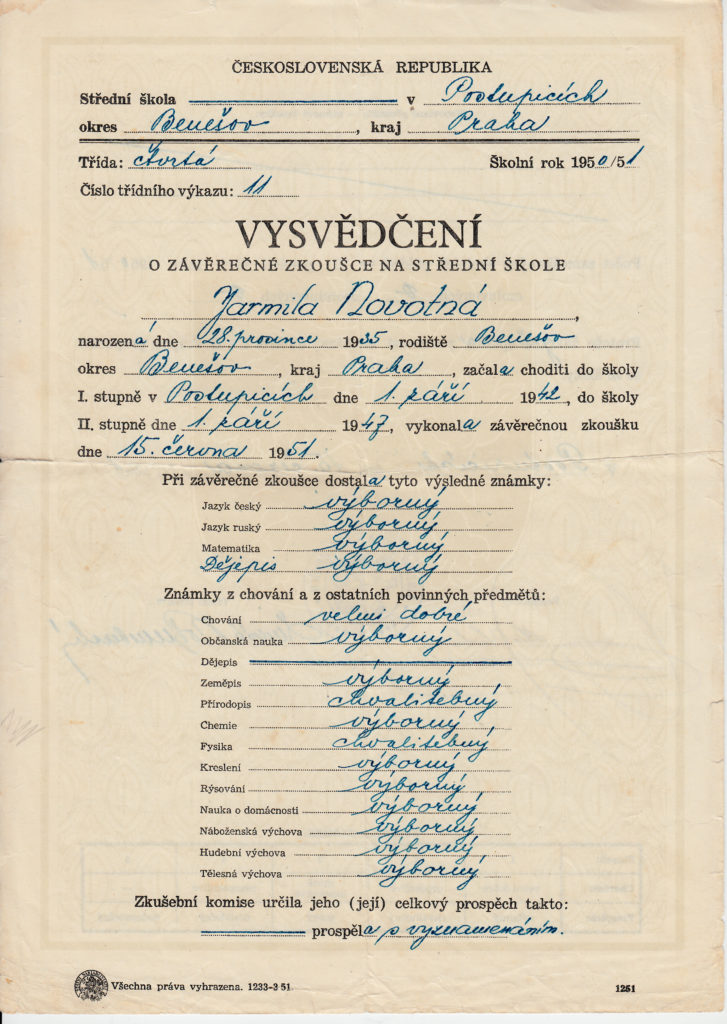 ČESKOSLOVENSKÁ REPUBLIKA
Střední škola v Postupicích
okres Benešov, kraj Praha
Třída: čtvrtá Školní rok 1950/51
Číslo třídního výkazu: 11
VYSVĚDČENÍ
O ZÁVĚREČNÉ ZKOUŠCE NA STŘEDNÍ ŠKOLE
Jarmila Novotná,
narozená dne 28. prosince 1935, rodiště Benešov
okres Benešov, kraj Praha, začala choditi do školy
I. stupně v Postupicích dne 1. září 1942, do školy
II. stupně dne 1. září 1947, vykonala závěrečnou zkoušku
dne 15. června 1951.
Při závěrečné zkoušce dostala tyto výsledné známky:
Jazyk český výborný
Jazyk ruský výborný
Matematika výborný
Dějepis výborný
Známky z chování a z ostatních povinných předmětů:
Chování velmi dobré
Občanská nauka výborný
Dějepis
Zeměpis výborný
Přírodopis chvalitebný
Chemie výborný
Fysika chvalitebný
Kreslení výborný
Rýsování výborný
Nauka o domácnosti výborný
Náboženská výchova výborný
Hudební výchova výborný
Tělesná výchova výborný
Zkušební komise určila jeho (její) celkový prospěch takto:
prospěla s vyznamenáním.
Všechna práva vyhrazena. 1233-3 51
1251